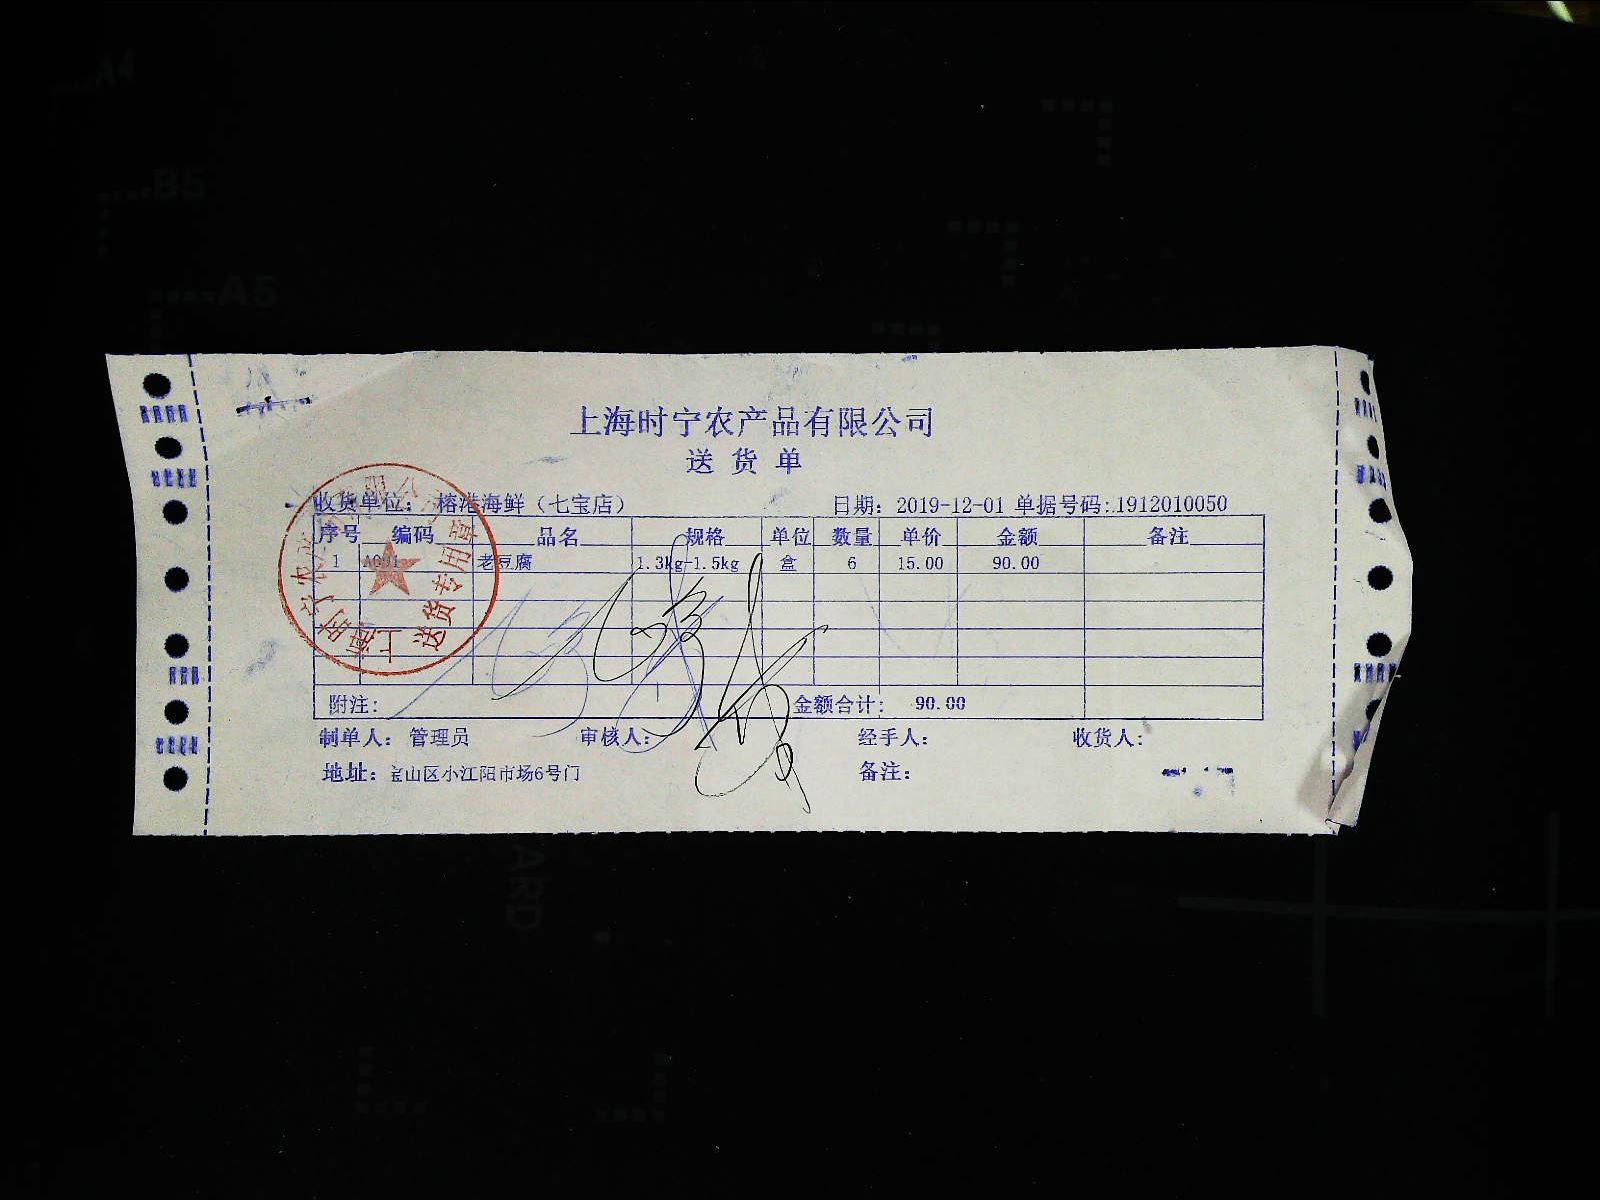 上海时宁农产品有限公司
送货单
收货单位: 榕港海鲜(七宝店) 日期: 2019-12-01 单据号码: 1912010050
序号 编码 品名 规格 单位 数量 单价 金额 备注
1 老豆腐 1.3kg-1.5kg 盒 6 15.00 90.00
附注: 金额合计: 90.00
制单人: 管理员 审核人: 经手人: 收货人:
地址: 宝山区小江阳市场6号门 备注:
上海时宁农产品有限公司
送货专用章
A4
B5
A5
ARD